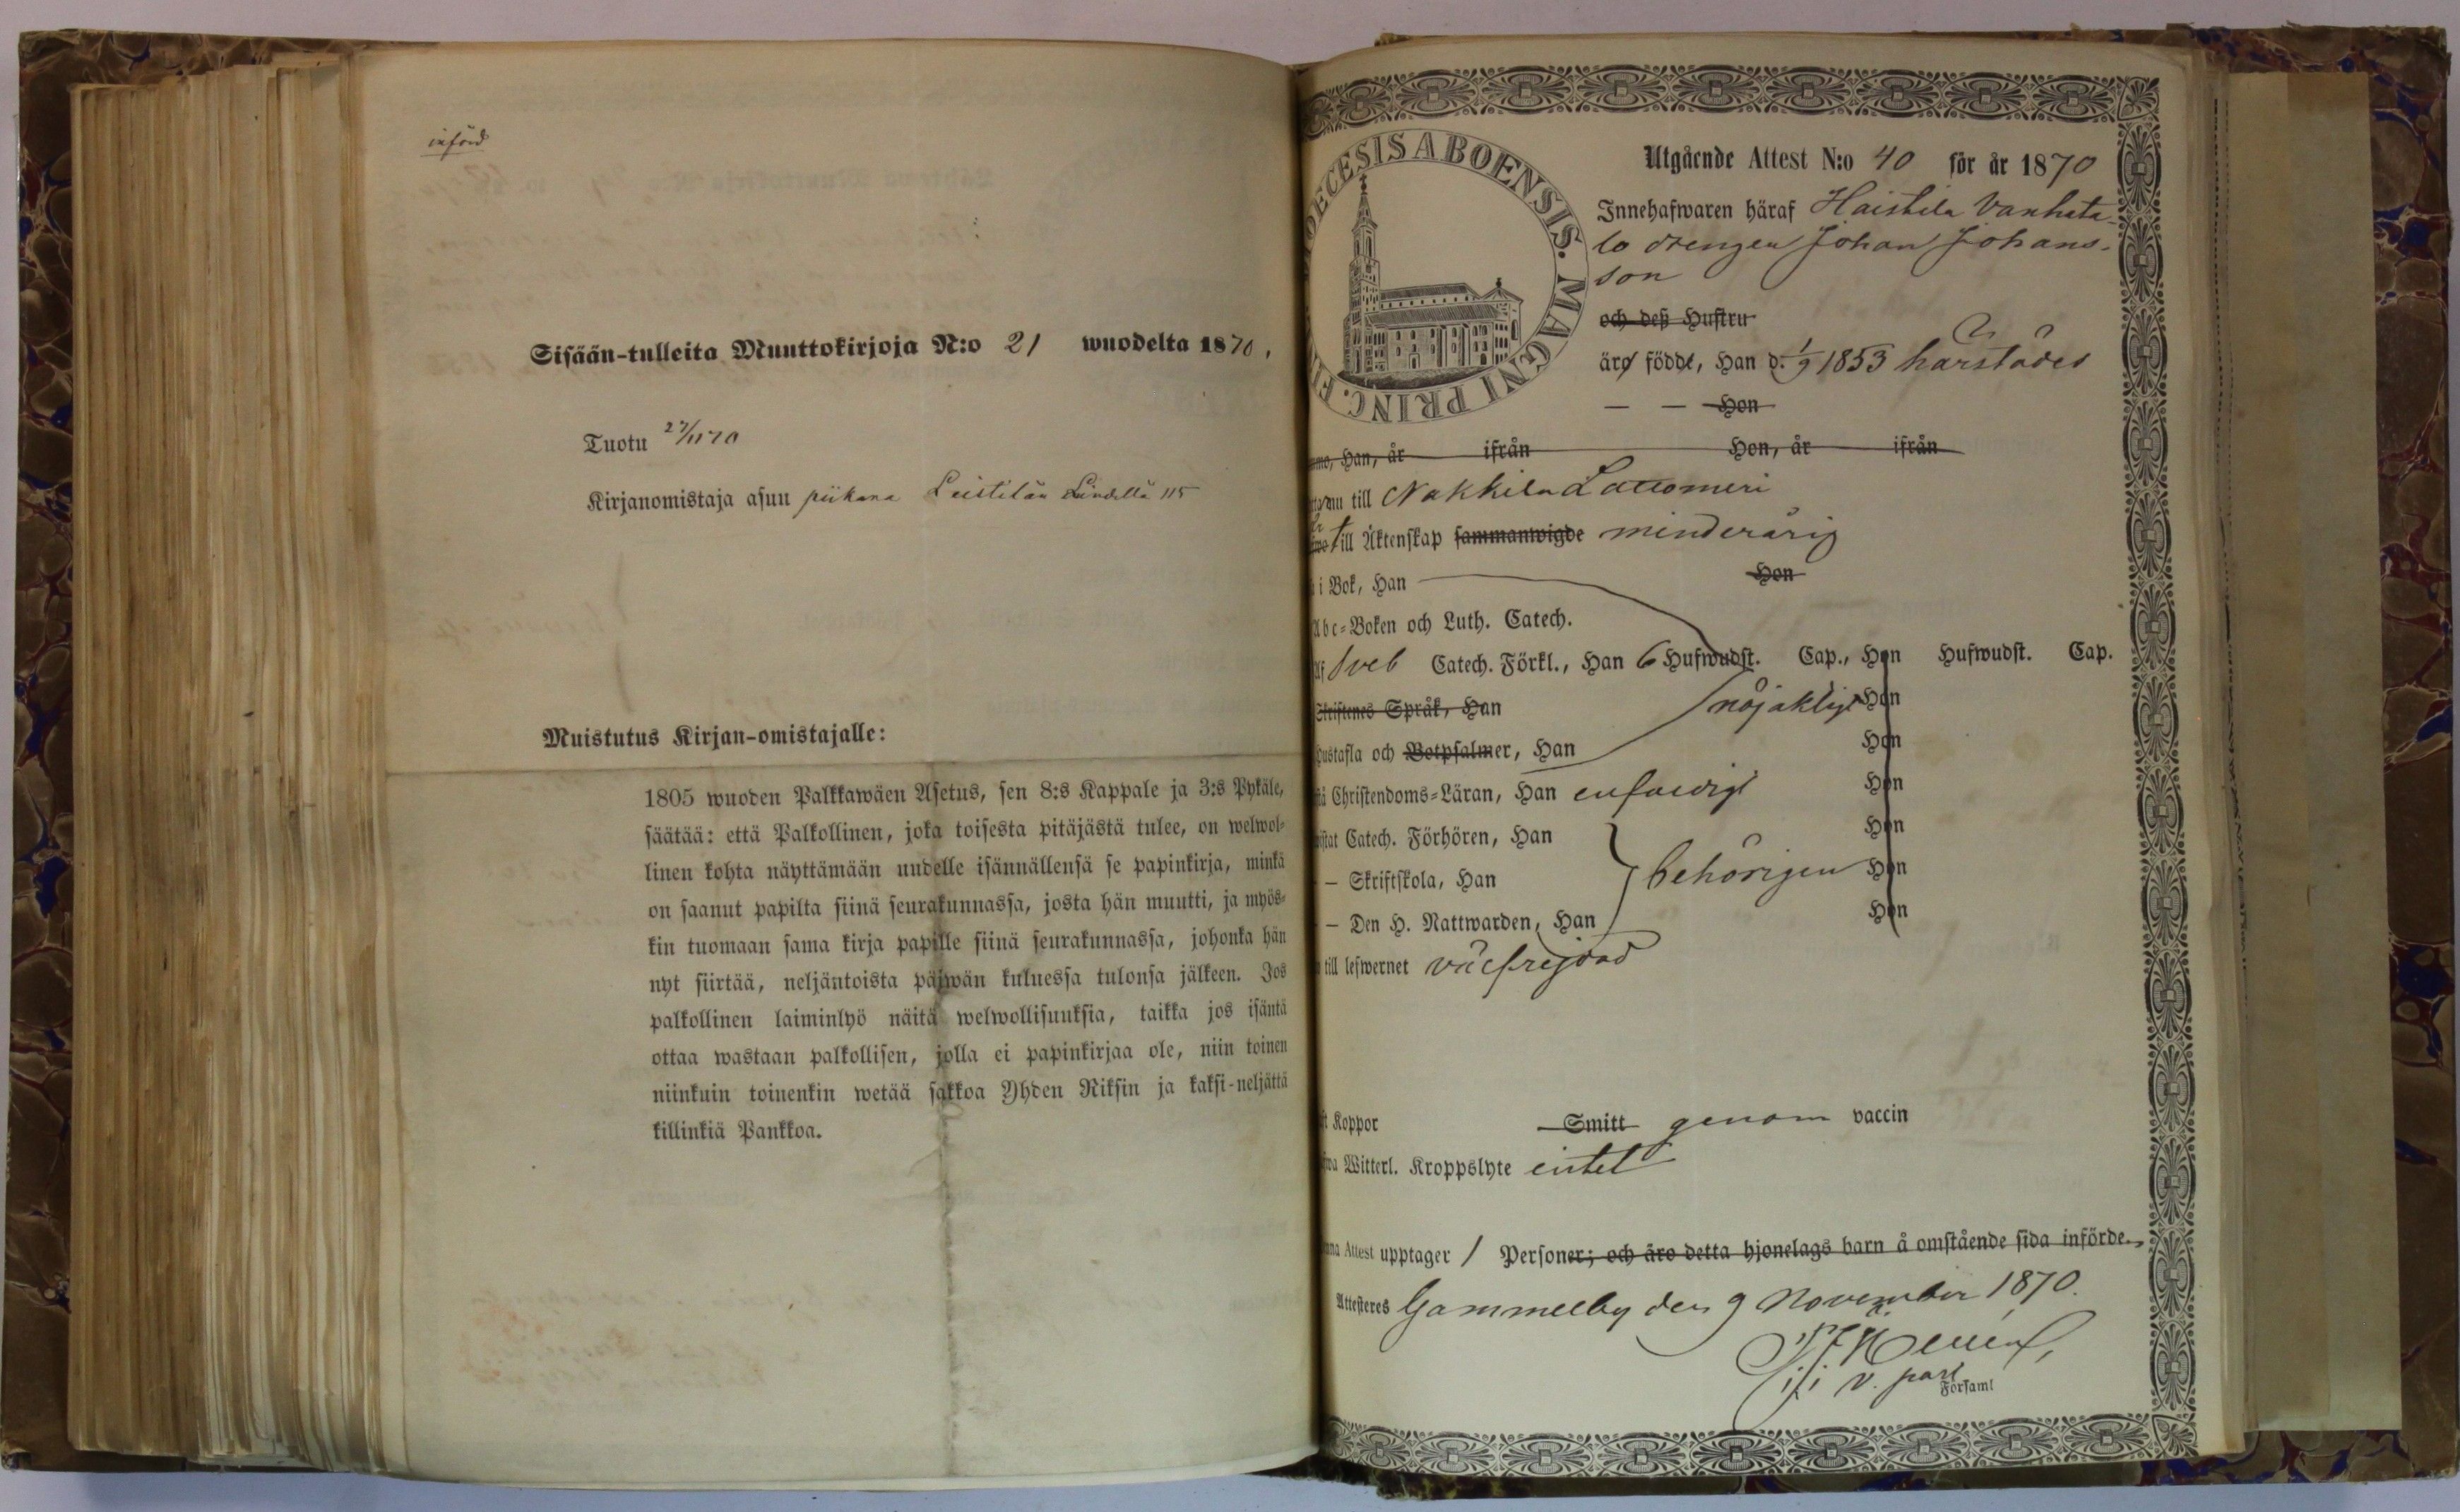 införd
Sisään-tulleita Muuttokirjoja N:o 21 wuodelta 1870,
Tuotu 27/11 70
Kirjanomistaja asuu piikana Leistilän Lindellä 115
Muistutus Kirjan-omistajalle:
1805 wuoden Palkkawäen Asetus, sen 8:s Kappale ja 3:s Pykäle,
säätää: että Palkollinen, joka toisesta pitäjästä tulee, on welwol-
linen kohta näyttämään uudelle isännällensä se papinkirja, minkä
on saanut papilta siinä seurakunnassa, josta hän muutti, ja myös-
kin tuomaan sama kirja papille siinä seurakunnassa, johonka hän
nyt siirtää, neljäntoista päiwän kuluessa tulonsa jälkeen. Jos
palkollinen laiminlyö näitä welwollisuuksia, taikka jos isäntä
ottaa wastaan palkollisen, jolla ei papinkirjaa ole, niin toinen
niinkuin toinenkin wetää sakkoa Yhden Riksin ja kaksi-neljättä
killinkiä Pankkoa.
DIOECESIS ABOENSIS. MAGNI PRINC. FI
Utgående Attest N:o 40 för år 1870
Innehafwaren häraf Haistila Vanhata-
lo drengen Johan Johans-
son
och deß Hustru
äro födde, Han d. 1/9 1853 härstädes
— — Hon
Han, år ifrån Hon, år ifrån
nu till Nakkila Lattomeri
till Äktenskap sammanwigde minderårig
i Bok, Han Hon
Abc-Boken och Luth. Catech.
Af Sveb Catech. Förkl., Han 6 Hufwudst. Cap., Hon Hufwudst. Cap.
Skriftenes Språk, Han nöjaktigt Hon
Hustafla och Botpsalmer, Han Hon
Christendoms-Läran, Han enfaldigt Hon
Catech. Förhören, Han Hon
— Skriftskola, Han behörigen Hon
— Den H. Nattwarden, Han Hon
till lefwernet välfrejdad
Koppor Smitt genom vaccin
Witterl. Kroppslyte intet
Attest upptager 1 Personer; och äro detta hjonelags barn å omstående sida införde.
Attesteres Gammelby den 9 November 1870.
v. past
Församl